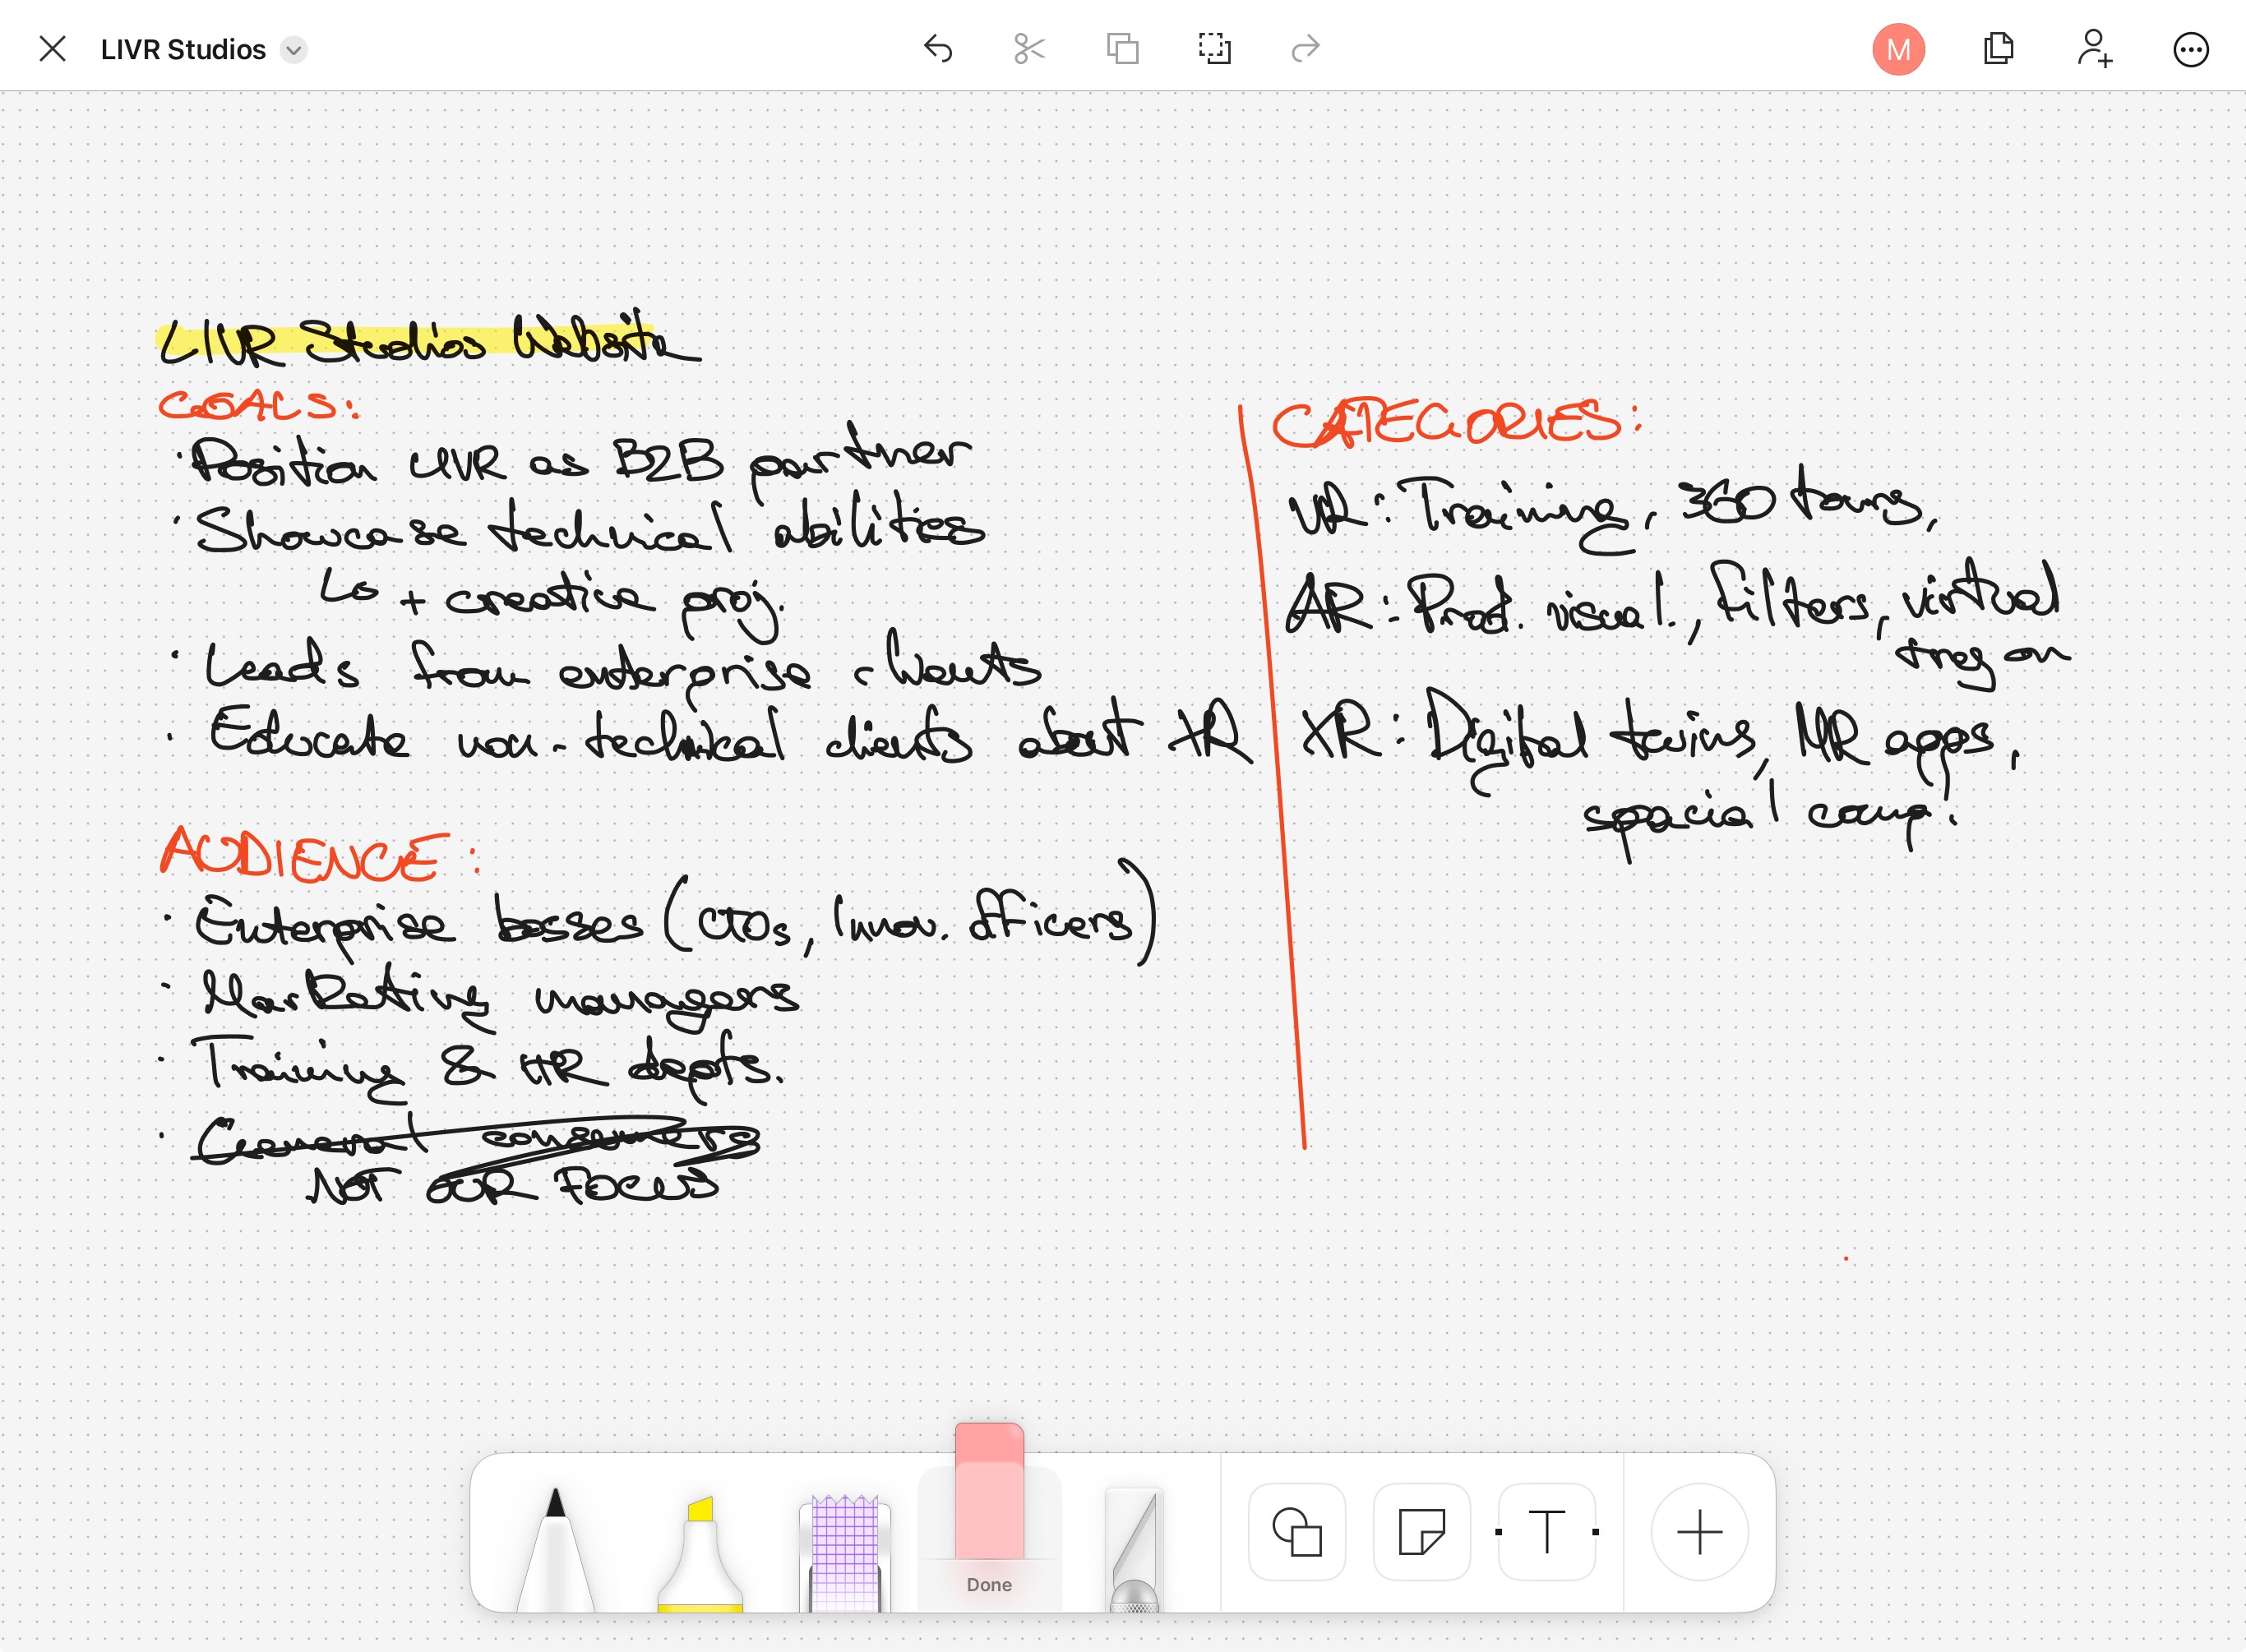 LIVR Studios
M
LIVR Studios Website
GOALS:
· Position LIVR as B2B partner
· Showcase technical abilities
↳ + creative proj.
· Leads from enterprise clients
· Educate non-technical clients about XR
AUDIENCE:
· Enterprise bosses (CTOs, Innov. officers)
· Marketing managers
· Training & HR depts.
· General consumers
NOT OUR FOCUS
CATEGORIES:
VR: Training, 360 tours,
AR: Prod. visual., filters, virtual
try on
XR: Digital twins, MR apps,
spacial comp.
Done
T